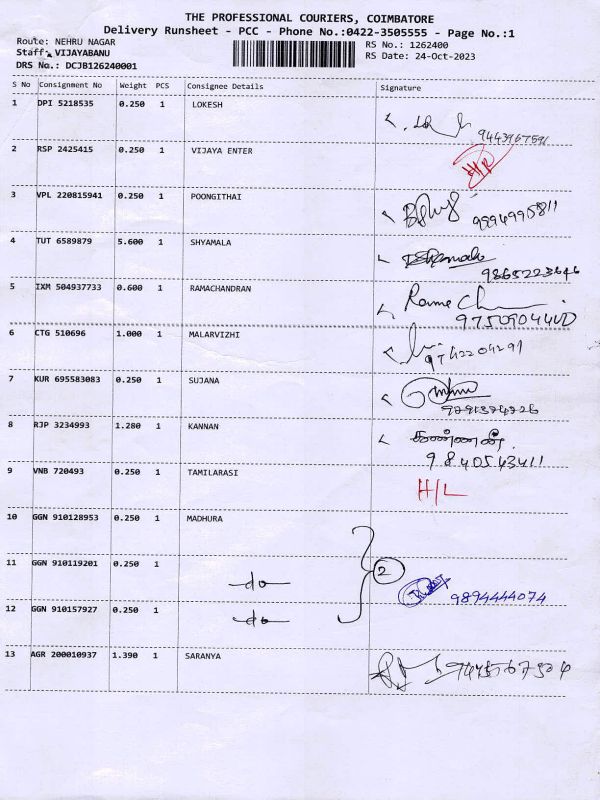 THE PROFESSIONAL COURIERS, COIMBATORE
Delivery Runsheet - PCC - Phone No.:0422-3505555 - Page No.:1
Route: NEHRU NAGAR RS No.: 1262400
Staff: VIJAYABANU RS Date: 24-Oct-2023
DRS No.: DCJB126240001
S No Consignment No Weight PCS Consignee Details Signature
1 DPI 5218535 0.250 1 LOKESH
2 RSP 2425415 0.250 1 VIJAYA ENTER
3 VPL 220815941 0.250 1 POONGITHAI
9994995811
4 TUT 6589879 5.600 1 SHYAMALA
9865223646
5 IXM 504937733 0.600 1 RAMACHANDRAN
6 CTG 510696 1.000 1 MALARVIZHI
7 KUR 695583083 0.250 1 SUJANA
8 RJP 3234993 1.280 1 KANNAN கண்ணன்
9840543411
9 VNB 720493 0.250 1 TAMILARASI
H/L
10 GGN 910128953 0.250 1 MADHURA
11 GGN 910119201 0.250 1
do 2
9894444074
12 GGN 910157927 0.250 1
do
13 AGR 200010937 1.390 1 SARANYA